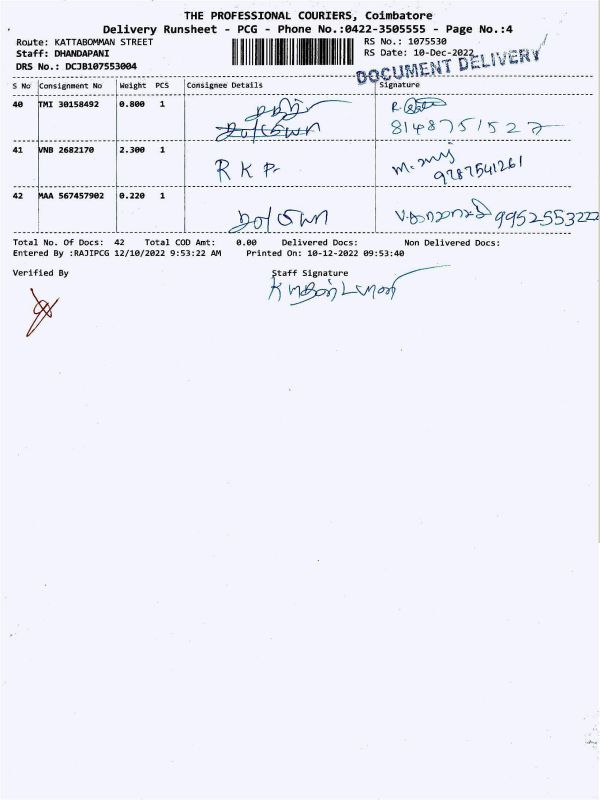 THE PROFESSIONAL COURIERS, Coimbatore
Delivery Runsheet - PCG - Phone No.:0422-3505555 - Page No.:4
Route: KATTABOMMAN STREET
RS No.: 1075530
Staff: DHANDAPANI
RS Date: 10-Dec-2022
DRS No.: DCJB107553004
DOCUMENT DELIVERY
S No Consignment No Weight PCS Consignee Details Signature
40 TMI 30158492 0.800 1
8148751527
41 VNB 2682170 2.300 1 R K P.
9787541261
42 MAA 567457902 0.220 1
9952553222
Total No. Of Docs: 42 Total COD Amt: 0.00 Delivered Docs: Non Delivered Docs:
Entered By :RAJIPCG 12/10/2022 9:53:22 AM Printed On: 10-12-2022 09:53:40
Verified By Staff Signature